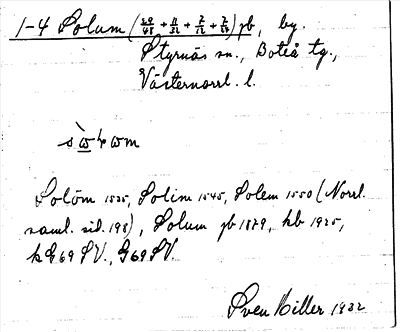 1-4 Solum ( + + + ) jb, by.
Styrnäs sn., Boteå tg.,
Västernorrl. l.
Solöm 1535, Solim 1545, Solem 1550 (Norrl.
saml. sid. 198), Solum jb 1879, kb 1925,
k G69 SV., G69 SV.
Sven Hiller 1932